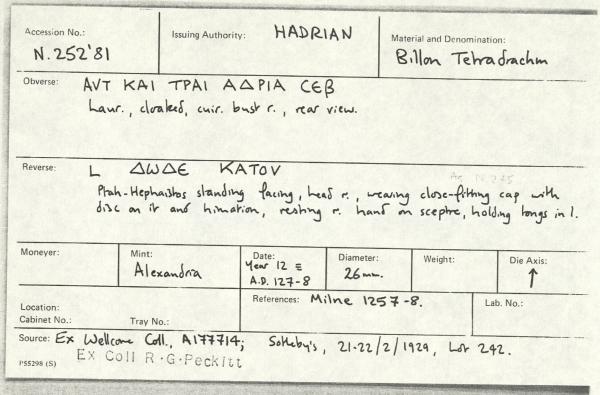 Accession No.:
N.252'81
Issuing Authority: HADRIAN
Material and Denomination:
Billon Tetradrachm
Obverse: ΑVΤ ΚΑΙ ΤΡΑΙ ΑΔΡΙΑ CΕβ
Laur., cloaked, cuir. bust r., rear view.
Reverse: L ΔωΔΕ ΚΑΤΟV
Ptah-Hephaistos standing facing, head r., wearing close-fitting cap with
disc on it and himation, resting r. hand on sceptre, holding tongs in l.
Moneyer:
Mint:
Alexandria
Date:
Year 12 =
A.D. 127-8
Diameter:
26mm.
Weight:
Die Axis:
↑
Location:
Cabinet No.: Tray No.:
References: Milne 1257-8.
Lab. No.:
Source: Ex Wellcome Coll., A177714; Sotheby's, 21-22/2/1929, Lot 242.
P55298 (S) Ex Coll R.G.Peckitt